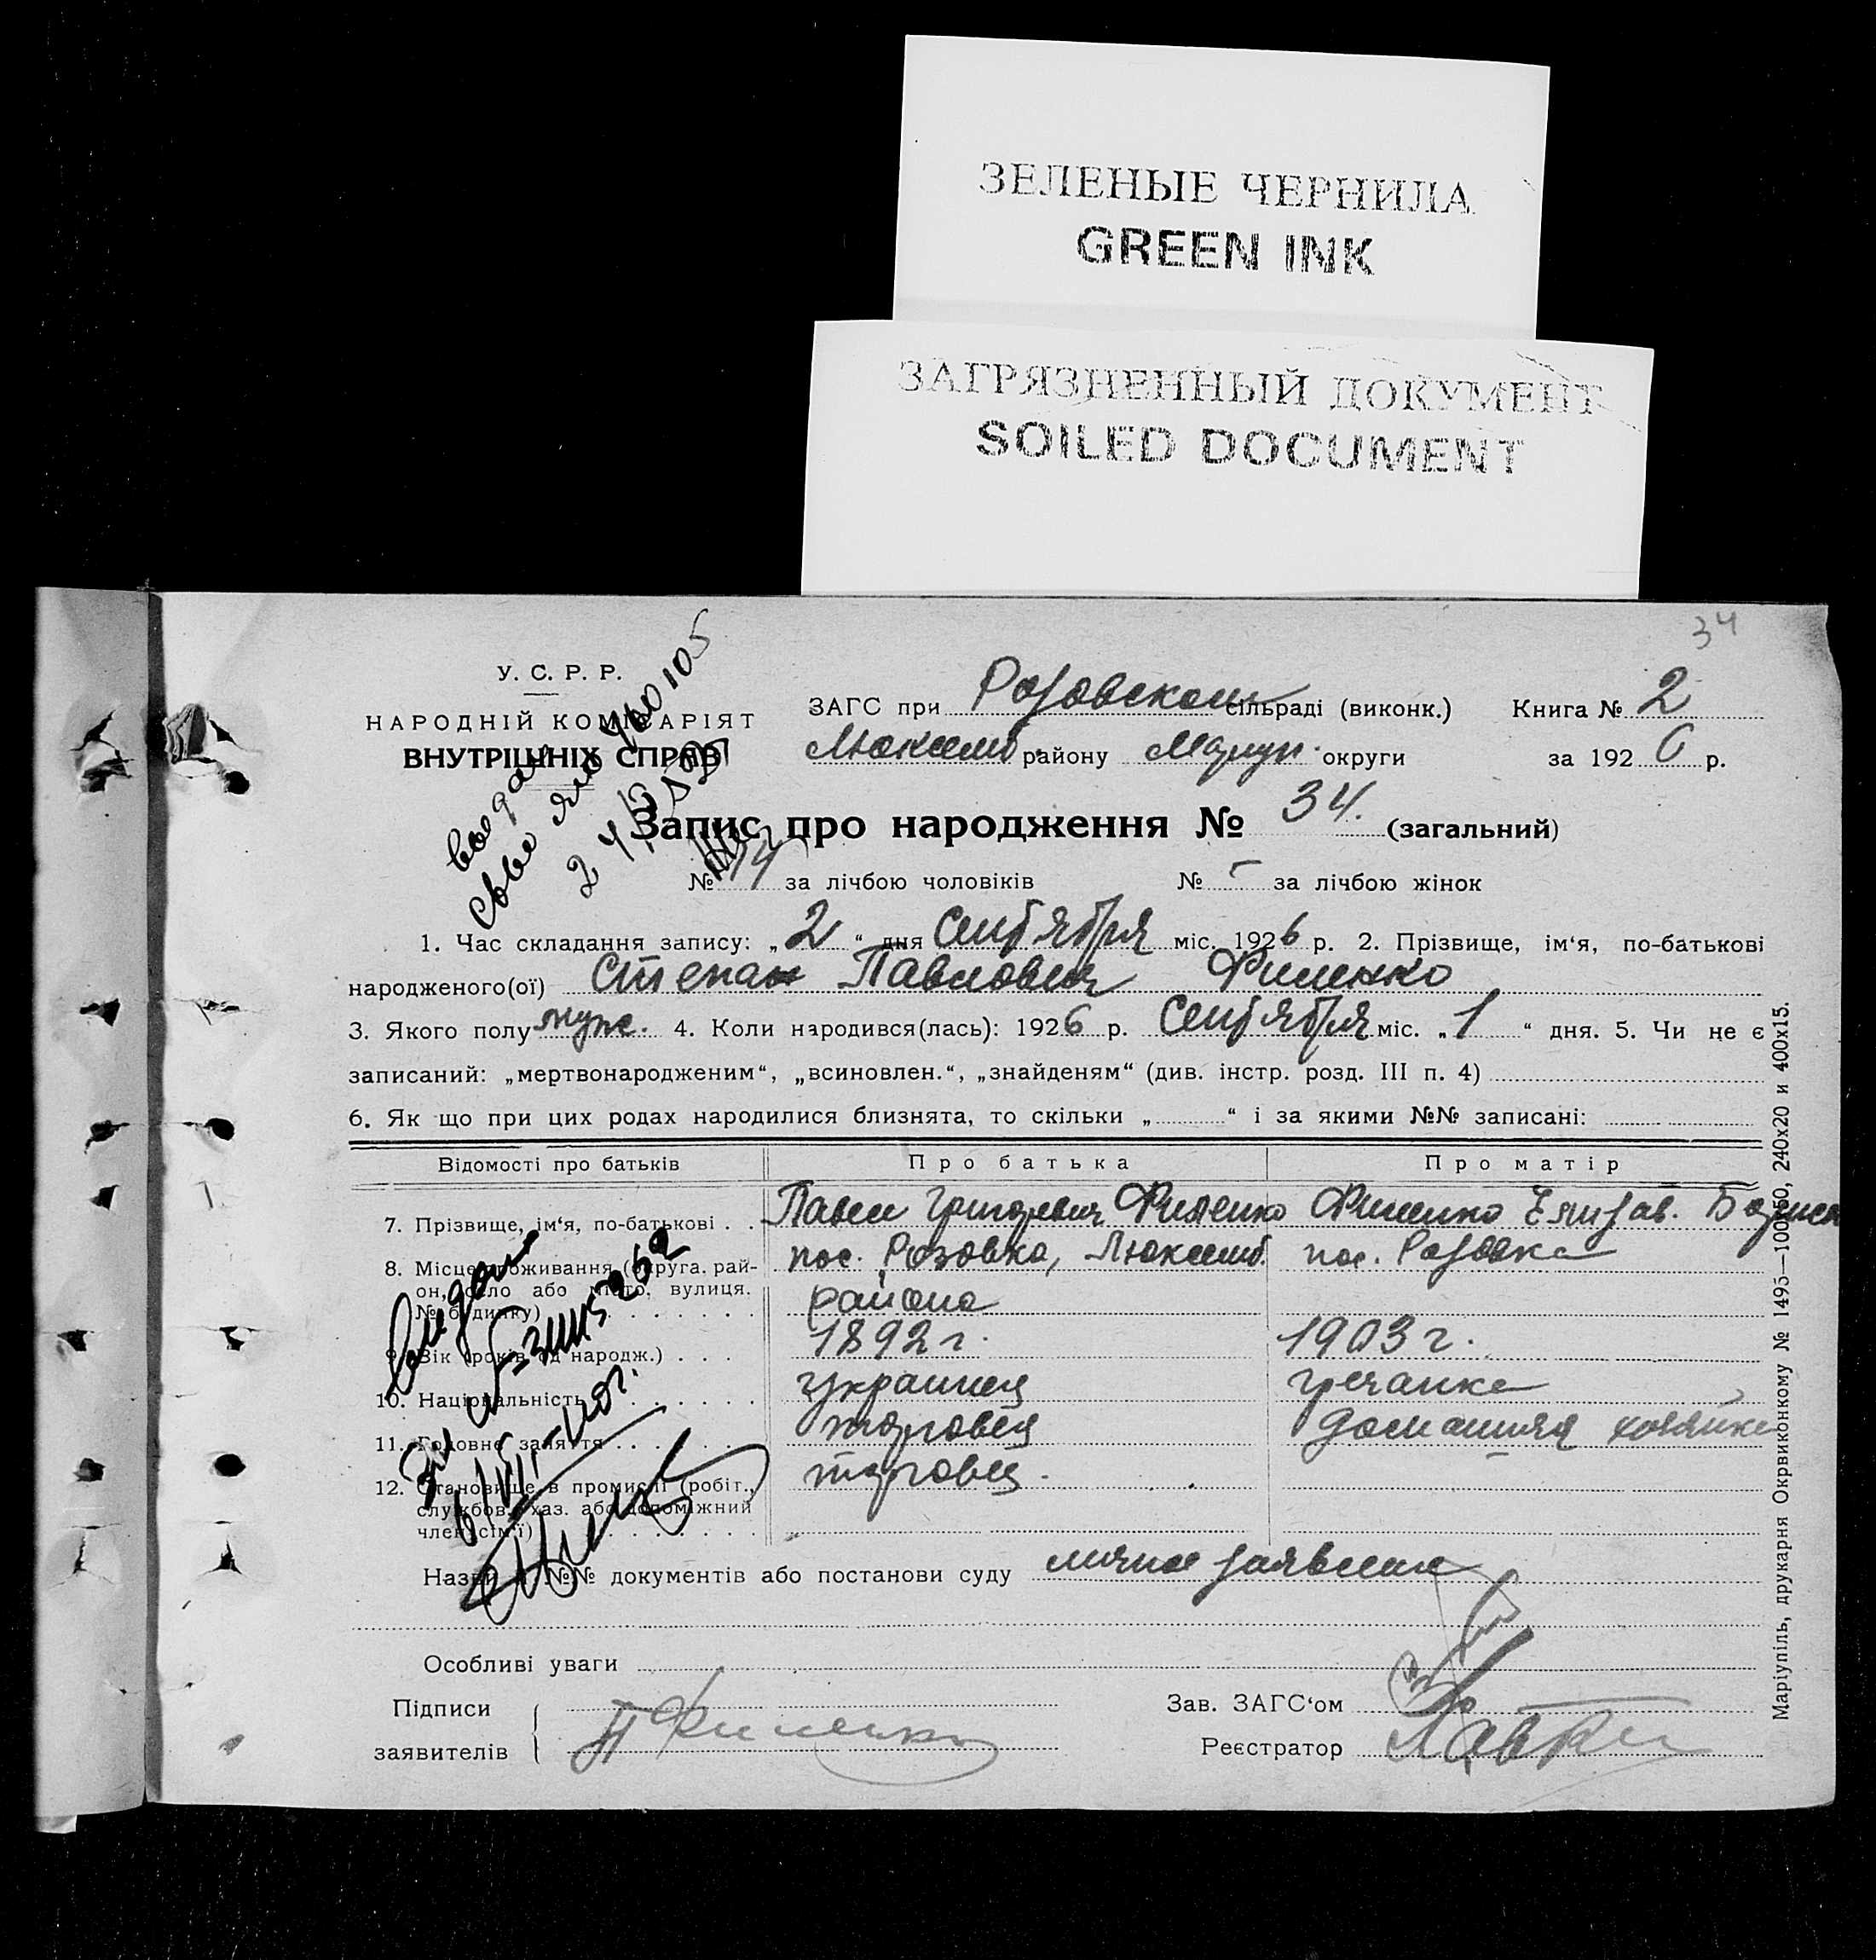 ЗЕЛЕНЫЕ ЧЕРНИЛА
GREEN INK
ЗАГРЯЗНЕННЫЙ ДОКУМЕНТ
SOILED DOCUMENT
34
У. С. Р. Р.
НАРОДНІЙ КОМІСАРІЯТ
ВНУТРІШНІХ СПРАВ
ЗАГС при Розовском сільраді (виконк.) Книга № 2
Люксемб району Мариуп. округи за 1926 р.
Запис про народження № 34. (загальний)
№ 14 за лічбою чоловіків № – за лічбою жінок
1. Час складання запису: „2“ дня Сентября міс. 1926 р. 2. Прізвище, ім‘я, по-батькові
народженого(ої) Степан Павлович Филенко
3. Якого полу муж. 4. Коли народився(лась): 1926 р. Сентября міс. „1“ дня. 5. Чи не є
записаний: „мертвонародженим“, „всиновлен.“, „знайденям“ (див. інстр. розд. III п. 4)
6. Як що при цих родах народилися близнята, то скільки „ “ і за якими №№ записані:
Відомості про батьків Про батька Про матір
7. Прізвище, ім‘я, по-батькові . . Павел Григоревич Филенко Филенко Елизав. Борисов
8. Місце проживання (округа, рай- пос. Розовка, Люксемб. пос. Розовка
он, село або місто, вулиця. района
№ будинку)
9. Вік (років од народж.) . . . 1892 г. 1903 г.
10. Національність украинец гречанка
11. Головне заняття торговец домашняя хозяйка
12. Становище в промислі (робіт., торговец.
службов., хаз. або допоміжний
член сім‘ї)
Назви і №№ документів або постанови суду личное заявление
Особливі уваги
Підписи
заявителів П Филенко
Зав. ЗАГС‘ом
Реєстратор
Маріупіль, друкарня Окрвиконкому № 1495—100×50, 240х20 и 400х15.